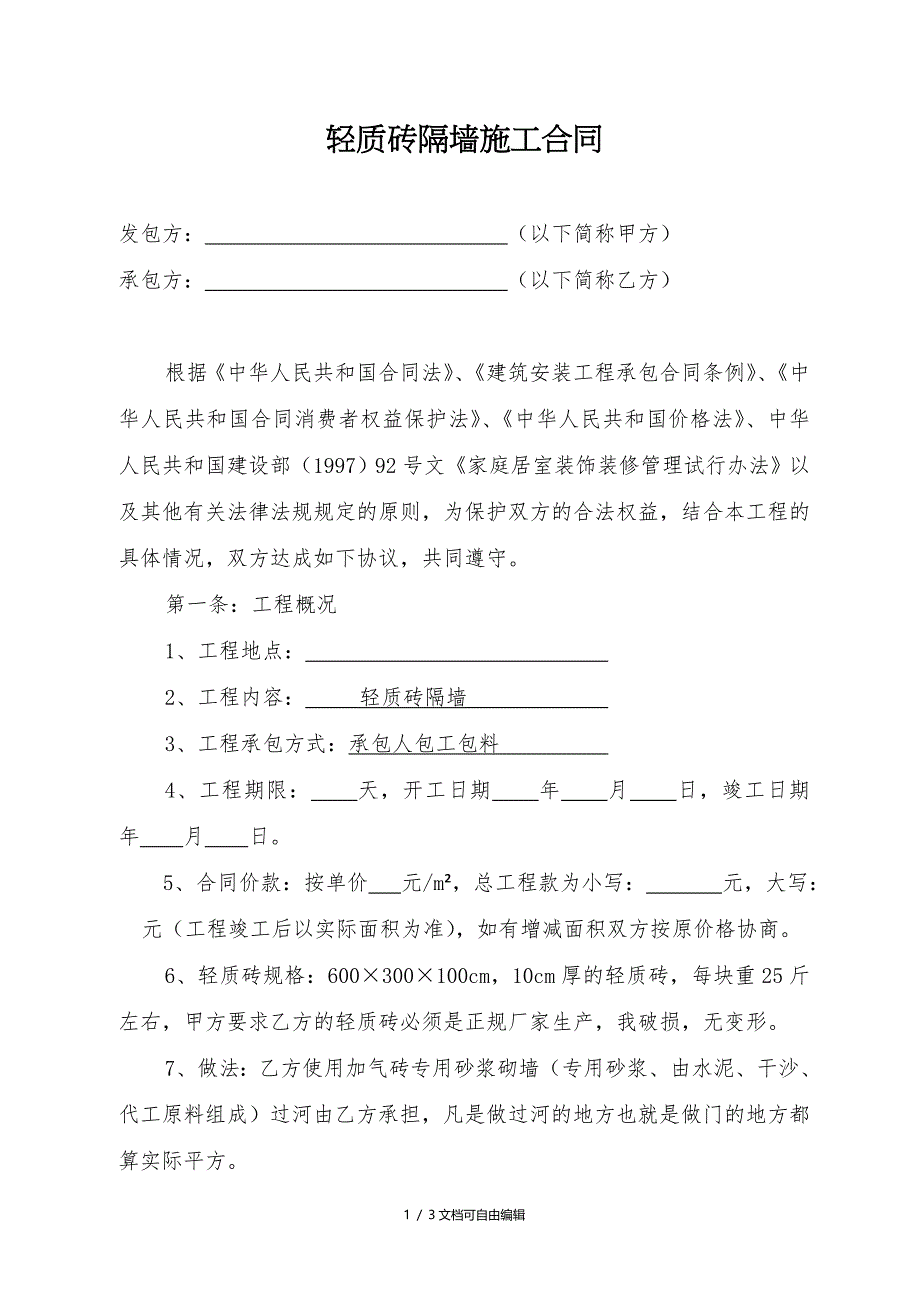 轻质砖隔墙施工合同
发包方：____________________________（以下简称甲方）
承包方：____________________________（以下简称乙方）
根据《中华人民共和国合同法》、《建筑安装工程承包合同条例》、《中
华人民共和国合同消费者权益保护法》、《中华人民共和国价格法》、中华
人民共和国建设部（1997）92 号文《家庭居室装饰装修管理试行办法》以
及其他有关法律法规规定的原则，为保护双方的合法权益，结合本工程的
具体情况，双方达成如下协议，共同遵守。
第一条：工程概况
1、工程地点：____________________________
2、工程内容：轻质砖隔墙
3、工程承包方式：承包人包工包料
4、工程期限：____天，开工日期____年____月____日，竣工日期
年____月____日。
5、合同价款：按单价___元/m²，总工程款为小写：_______元，大写：
元（工程竣工后以实际面积为准），如有增减面积双方按原价格协商。
6、轻质砖规格：600×300×100cm，10cm 厚的轻质砖，每块重 25 斤
左右，甲方要求乙方的轻质砖必须是正规厂家生产，我破损，无变形。
7、做法：乙方使用加气砖专用砂浆砌墙（专用砂浆、由水泥、干沙、
代工原料组成）过河由乙方承担，凡是做过河的地方也就是做门的地方都
算实际平方。
1 / 3 文档可自由编辑